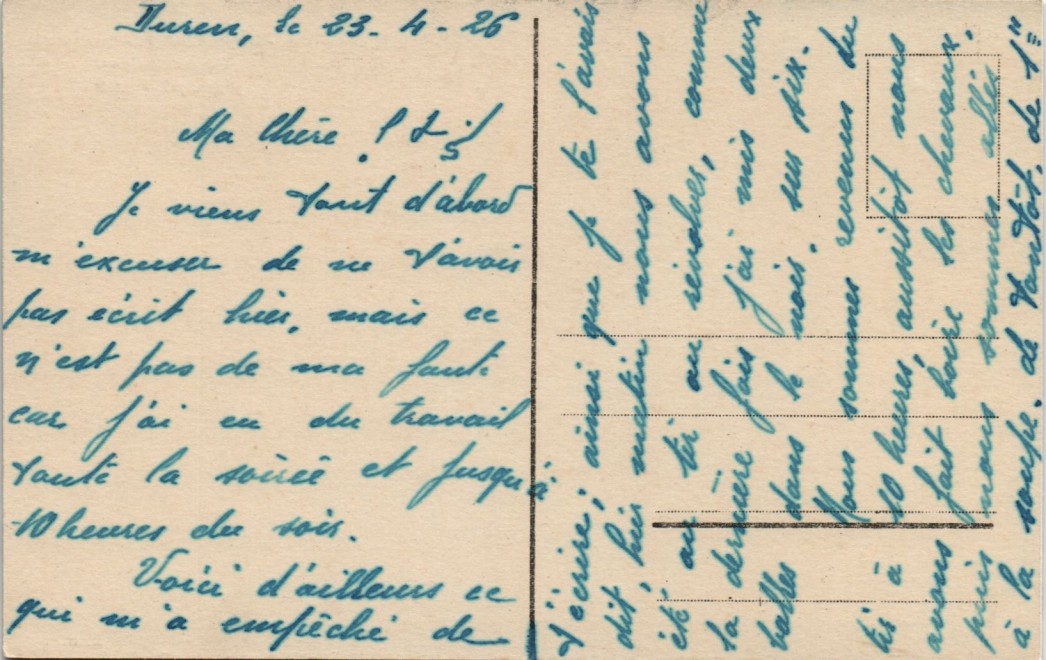 Duren, le 23-4-26
Ma Chère
Je viens tout d'abord
m'excuser de ne t'avoir
pas écrit hier, mais ce
n'est pas de ma faute
car j'ai eu du travail
toute la soirée et jusqu'à
10 heures du soir.
Voici d'ailleurs ce
qui m'a empêché de
t'écrire; ainsi que je te l'avais
dit, hier matin nous avons
été au tir au revolver, comme
la dernière fois j'ai mis deux
balles dans le noir. sur six.
Nous sommes revenus du
tir à 10 heures aussitôt nous
avons fait boire les chevaux,
puis nous sommes allés
à la soupe. de tantôt, de 1